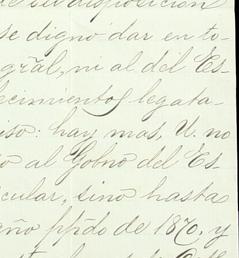 de su disposicion
se dignó dar en to-
gräl, ni al del Es-
lecimiento legata-
iso: hay mas, U. no
o al Gobno del Es-
cular, sinó hasta
año ppdo de 1870. y